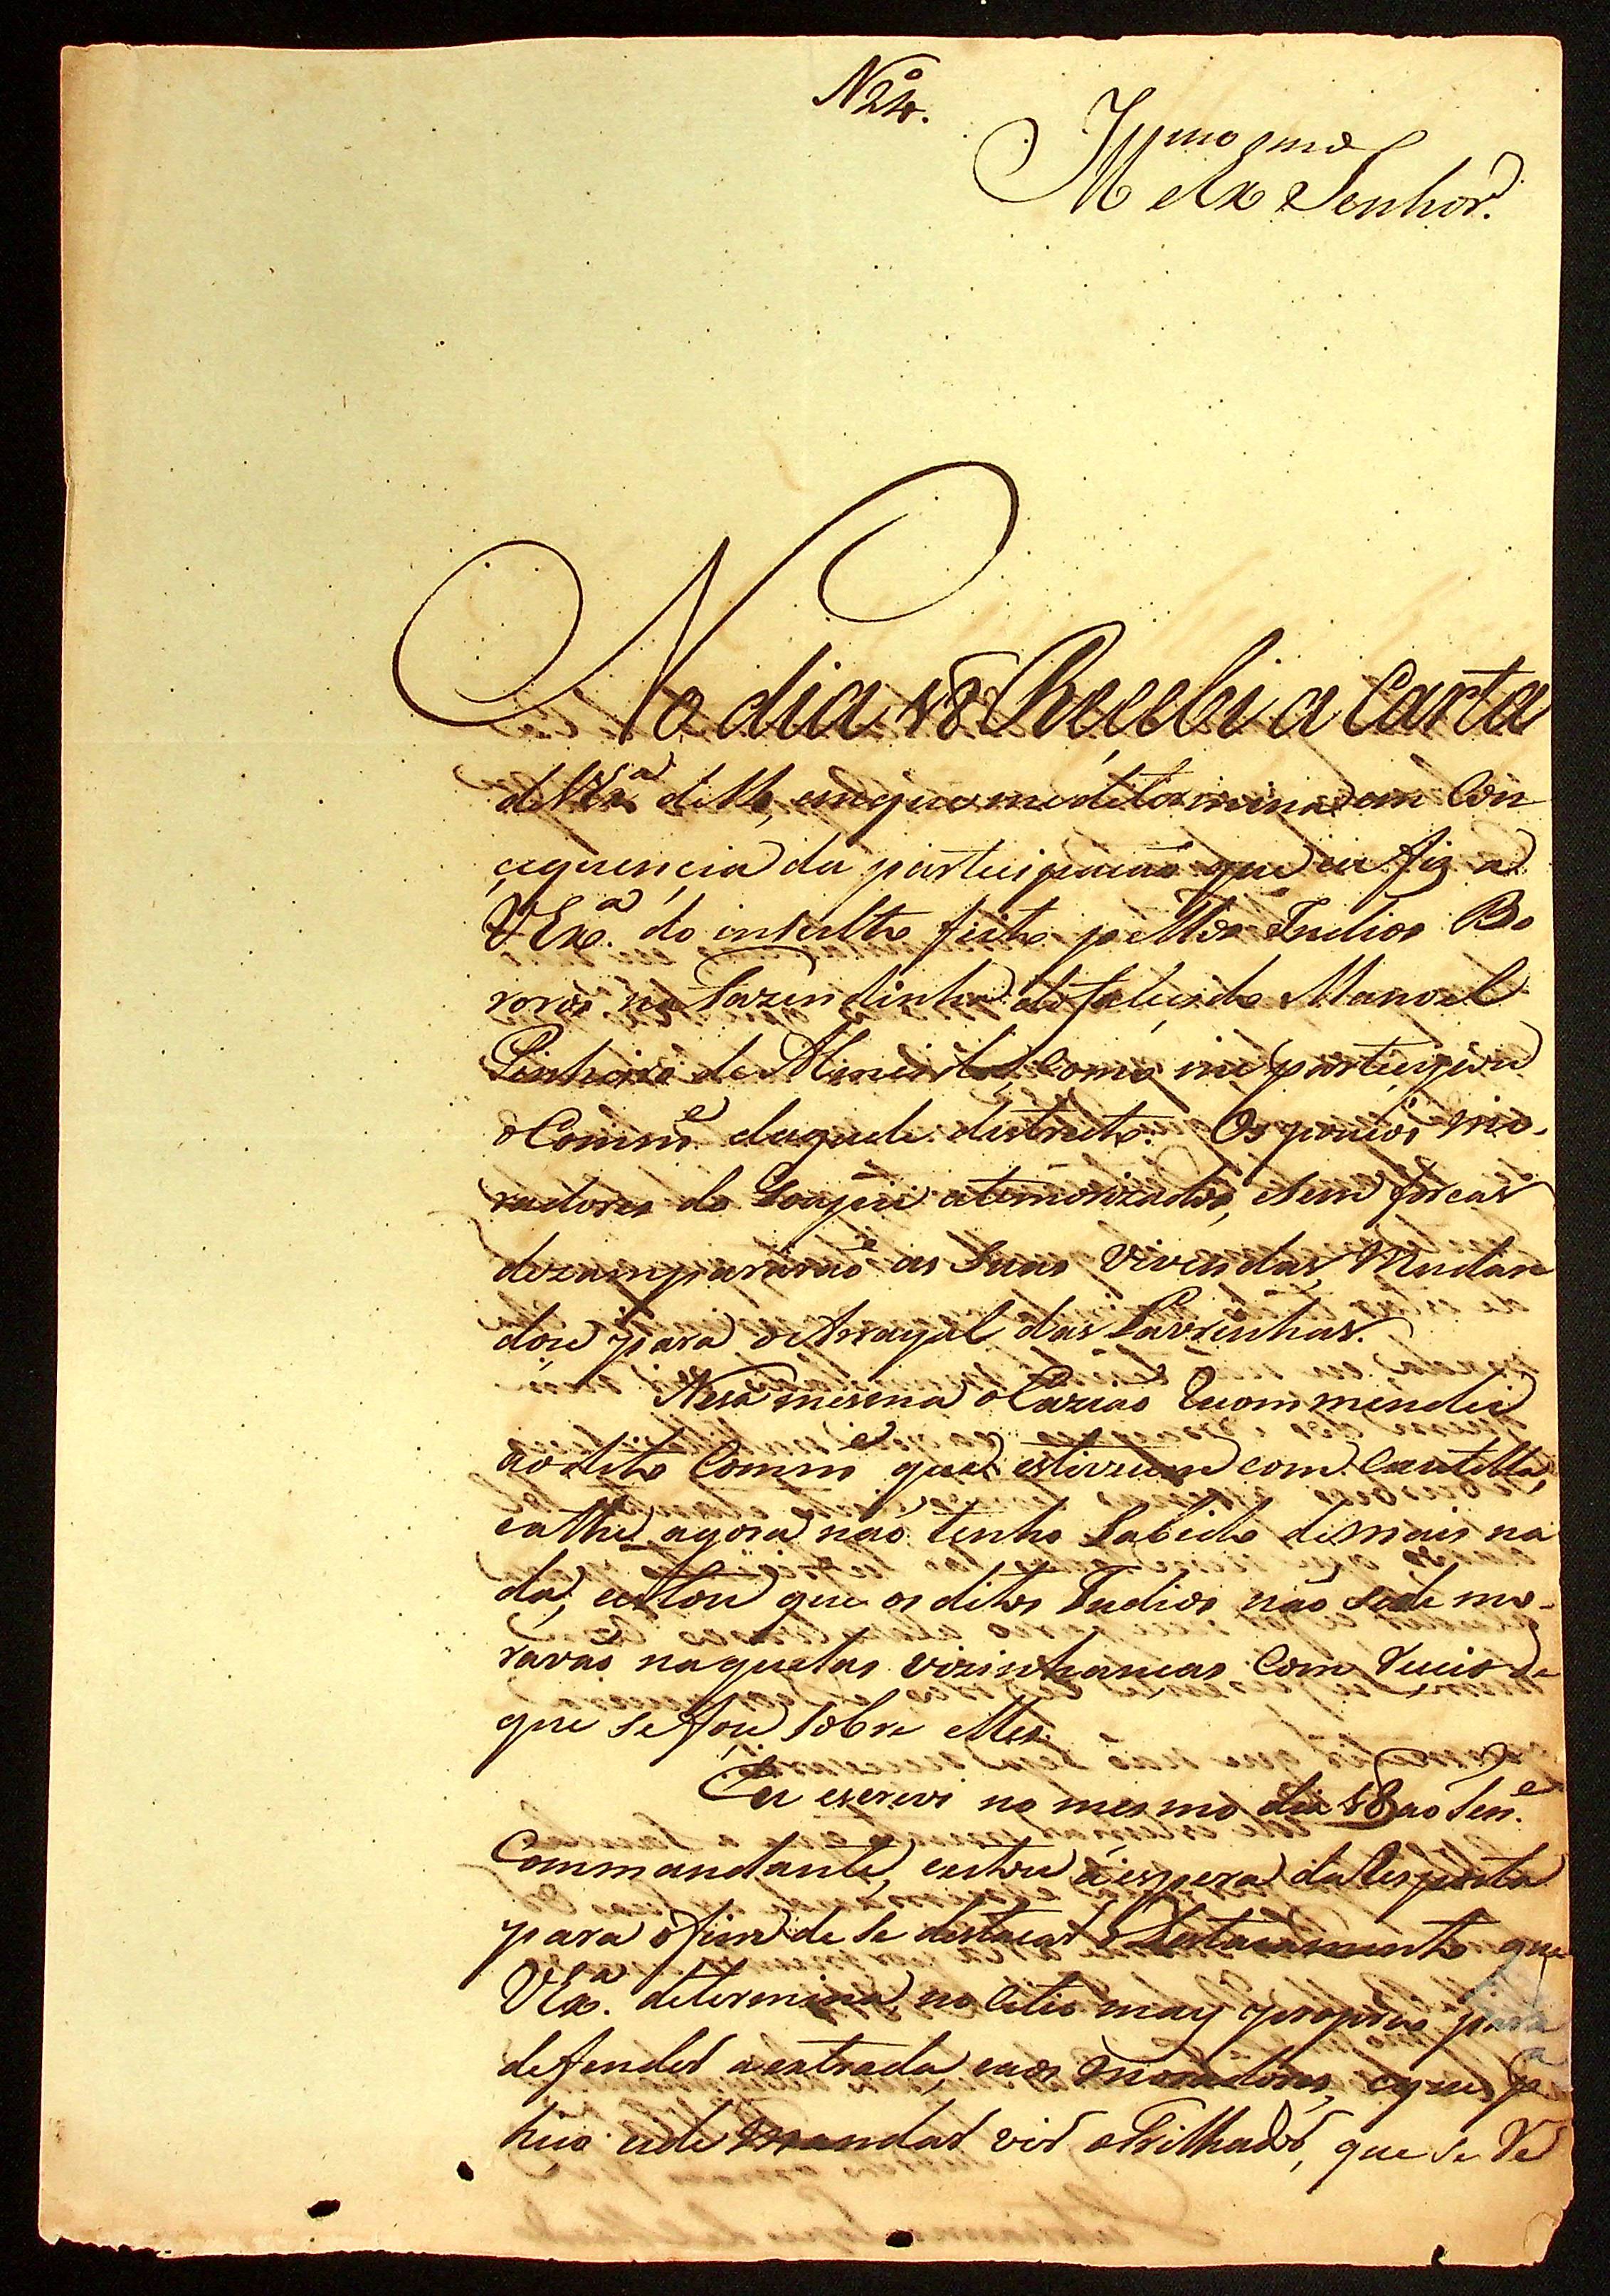 Nº 24.
Illmo e Exmo Senhor.
No dia 18 Recebi a Carta
de VExa de 16, em que me determina em Con
cequencia da participacaõ que eu fiz a
VExa. do insulto feito pellos Indios Bo
roros na Fazendinha do falecido Manoel
Pinheiro de Almeida, como me participou
o Comme daquele destricto. Os poucos mo-
radores do atemorizados, e sem forcas
dezampararaõ as Suas Vivendas, Mudan
doce para o Arrayal das Lavrinhas.
Nesa mesma oCaziaõ Recommendei
ao dito Comme que estivecem com Cautella,
e athe agora naõ tenho Sabido de mais na
da, e estou que os ditos Indios naõ se de mo-
ravaõ naquelas vizinhancas com Receio de
que se fose sobre elles.
Eu escrevi no mesmo dia 18 ao Tene.
Commandante, e estou á espera da Resposta
para o fim de se destacar o Destacamento que
VExa. determina, no Citio may proprio para
defender a entrada, e aos moradores, e que pa
hiço ei de mandar vir o Trilhador, que se Re